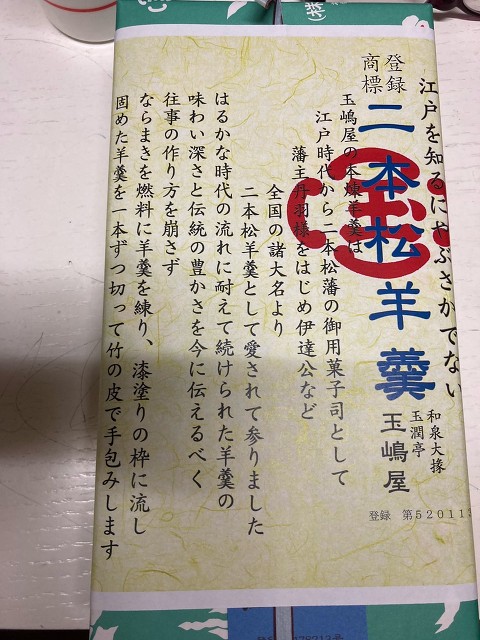 江戸を知るにやぶさかでない
登録
商標
二本松羊羹
和泉大掾
玉潤亭
玉嶋屋
登録 第520113
玉嶋屋の本煉羊羹は
江戸時代から二本松藩の御用菓子司として
藩主丹羽様をはじめ伊達公など
全国の諸大名より
二本松羊羹として愛されて参りました
はるかな時代の流れに耐えて続けられた羊羹の
味わい深さと伝統の豊かさを今に伝えるべく
往事の作り方を崩さず
ならまきを燃料に羊羹を練り、漆塗りの枠に流し
固めた羊羹を一本ずつ切って竹の皮で手包みします